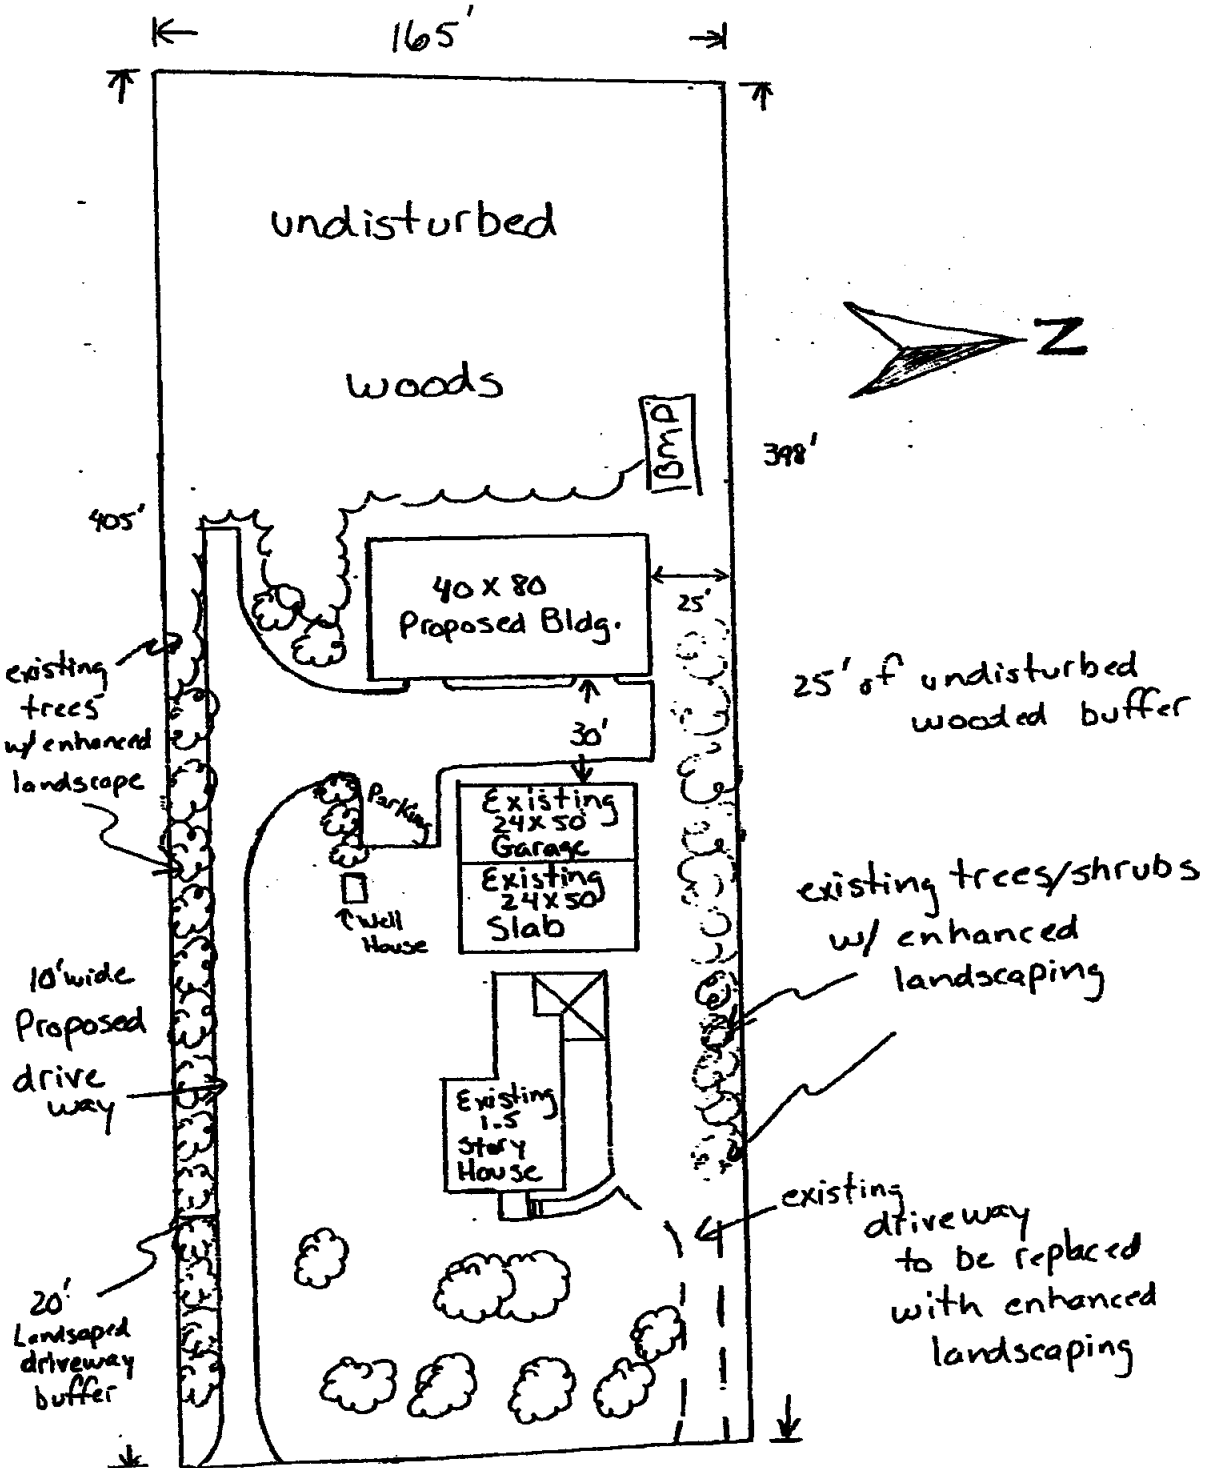 165'
undisturbed
woods
N
BMP
398'
405'
40 X 80
Proposed Bldg.
25'
25' of undisturbed
wooded buffer
existing
trees
w/ enhanced
landscape
30'
Parking
Existing
24X50'
Garage
Existing
24X50
Slab
existing trees/shrubs
w/ enhanced
landscaping
Well
House
10' wide
Proposed
drive
way
Existing
1.5
Story
House
existing
driveway
to be replaced
with enhanced
landscaping
20'
Landsaped
driveway
buffer